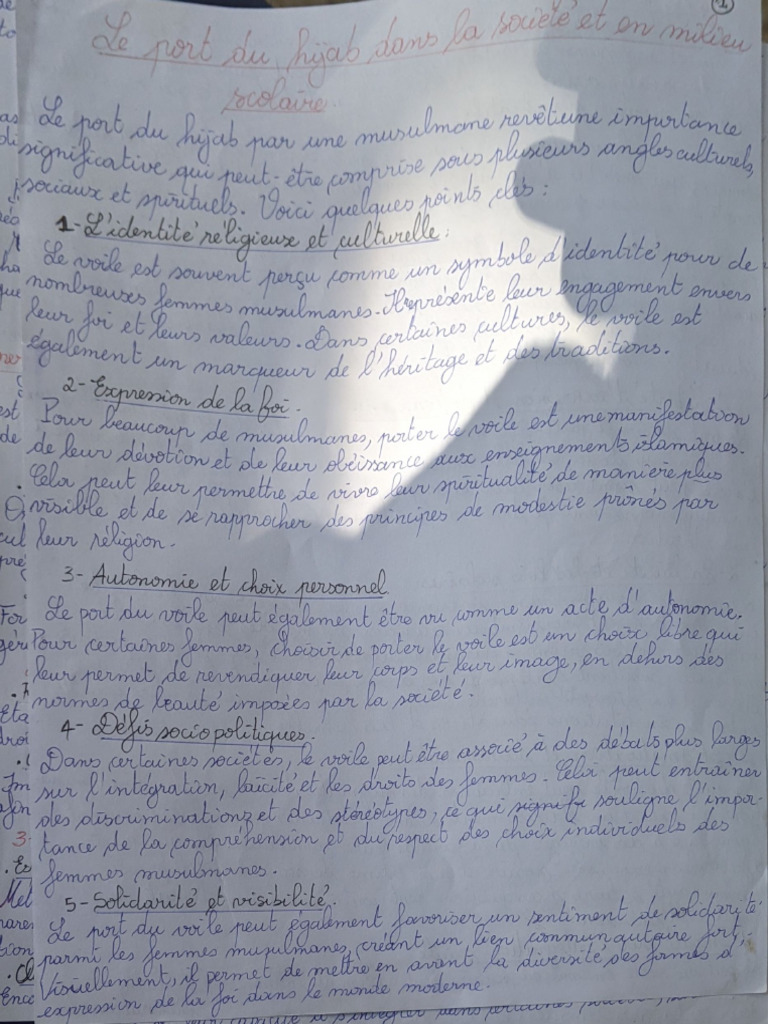 1
Le port du hijab dans la société et en milieu
scolaire.
Le port du hijab par une musulmane revêt une importance
significative qui peut-être comprise sous plusieurs angles culturels,
sociaux et spirituels. Voici quelques points clés :
1- L'identité réligieux et culturelle :
Le voile est souvent perçu comme un symbole d'identité pour de
nombreuses femmes musulmanes. Il représente leur engagement envers
leur foi et leurs valeurs. Dans certaines cultures, le voile est
également un marqueur de l'héritage et des traditions.
2- Expression de la foi.
Pour beaucoup de musulmanes, porter le voile est une manifestation
de leur dévotion et de leur obéissance aux enseignements islamiques.
Cela peut leur permettre de vivre leur spiritualité de manière plus
visible et de se rapprocher des principes de modestie prônés par
leur réligion.
3- Autonomie et choix personnel
Le port du voile peut également être vu comme un acte d'autonomie.
Pour certaines femmes, choisir de porter le voile est un choix libre qui
leur permet de revendiquer leur corps et leur image, en dehors des
normes de beauté imposées par la société.
4- Défis sociopolitiques.
Dans certaines sociétés, le voile peut être associé à des débats plus larges
sur l'intégration, laïcité et les droits des femmes. Cela peut entraîner
des discriminations et des stéréotypes, ce qui souligne l'impor-
tance de la compréhension et du respect des choix individuels des
femmes musulmanes.
5- Solidarité et visibilité.
Le port du voile peut également favoriser un sentiment de solidarité
parmi les femmes musulmanes, créant un lien communautaire fort.
Visuellement, il permet de mettre en avant la diversité des formes d'
expression de la foi dans le monde moderne.